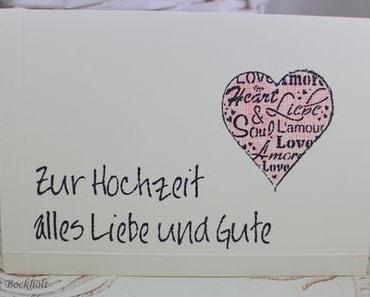 Love Amor
Heart
Liebe
&
Soul L'amour
Love
Amore
Love
Zur Hochzeit
alles Liebe und Gute
Bockholt